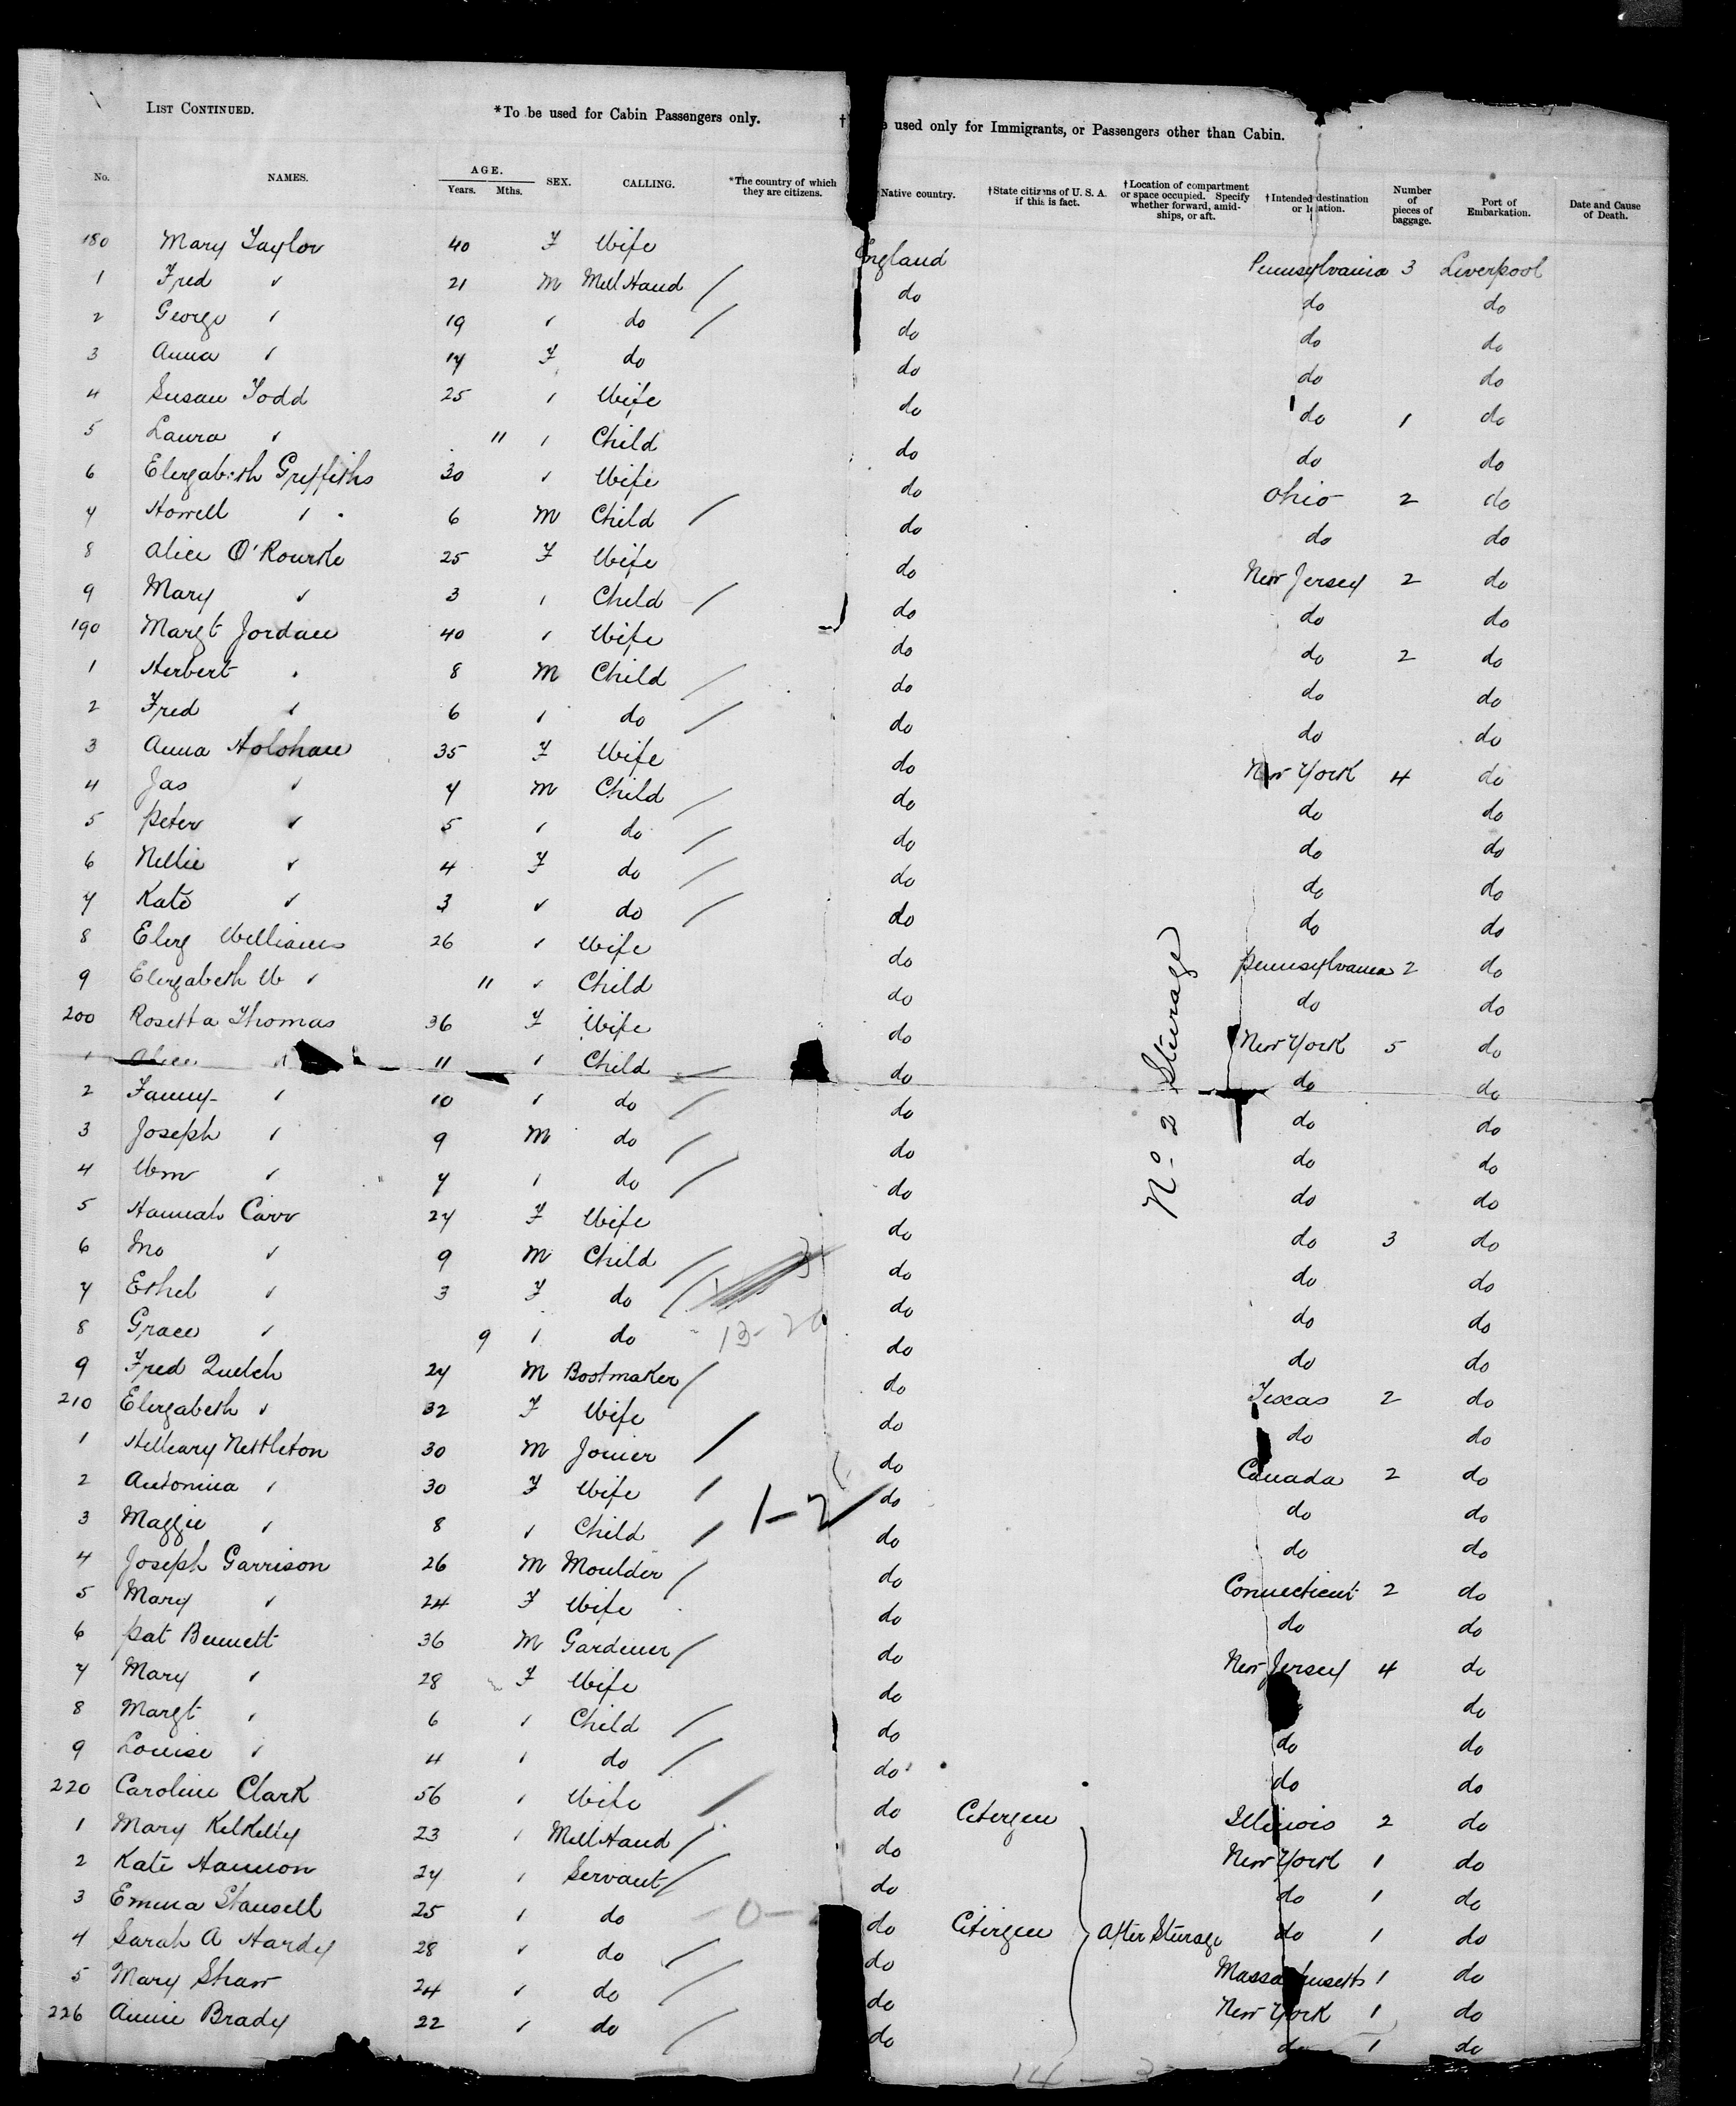 LIST CONTINUED. *To be used for Cabin Passengers only. † e used only for Immigrants, or Passengers other than Cabin.
No. NAMES. AGE. Years. Mths. SEX. CALLING. *The country of which they are citizens. Native country. †State citizens of U. S. A. if this is fact. †Location of compartment or space occupied. Specify whether forward, amidships, or aft. †Intended destination or location. Number of pieces of baggage. Port of Embarkation. Date and Cause of Death.
180 Mary Taylor 40 F Wife England Pennsylvania 3 Liverpool
1 Fred " 21 M Mill Hand / do do do
2 George " 19 " do / do do do
3 Anna " 17 F do do do do
4 Susan Todd 25 " Wife do do 1 do
5 Laura " 11 " Child do do do
6 Elizabeth Griffiths 30 " Wife do Ohio 2 do
7 Howell " 6 M Child / do do do
8 Alice O'Rourke 25 F Wife do New Jersey 2 do
9 Mary " 3 " Child / do do do
190 Margt Jordan 40 " Wife do do 2 do
1 Herbert " 8 M Child / do do do
2 Fred " 6 " do / do do do
3 Anna Holohan 35 F Wife do New York 4 do
4 Jas " 7 M Child / do do do
5 Peter " 5 " do / do do do
6 Nellie " 4 F do / do do do
7 Kate " 3 " do / do do do
8 Eliz Williams 26 " Wife do Pennsylvania 2 do
9 Elizabeth W " 11 " Child do do do
200 Rosetta Thomas 36 F Wife do New York 5 do
1 Alice " 11 " Child / do do do
2 Fanny " 10 " do / do do do
3 Joseph " 9 M do / do do do
4 Wm " 7 " do / do do do
5 Hannah Carr 27 F Wife do do 3 do
6 Jno " 9 M Child / do do do
7 Ethel " 3 F do / do do do
8 Grace " 9 " do 13-20 do do do
9 Fred Quelch 27 M Bootmaker / do Texas 2 do
210 Elizabeth " 32 F Wife do do do
1 Nettleton 30 M Joiner / do Canada 2 do
2 Antonina " 30 F Wife / 1-2 do do do
3 Maggie " 8 " Child / do do do
4 Joseph Garrison 26 M Moulder / do Connecticut 2 do
5 Mary " 24 F Wife do do do
6 Pat Bennett 36 M Gardener / do New Jersey 4 do
7 Mary " 28 F Wife do do
8 Margt " 6 " Child / do do do
9 Louise " 4 " do / do do do
220 Caroline Clark 56 " Wife / do Citizen Illinois 2 do
1 Mary Kilkelly 23 " Mill Hand / do New York 1 do
2 Kate Hannon 27 " Servant / do do 1 do
3 Emma Stansell 25 " do -0- do Citizen After Sturage do 1 do
4 Sarah A Hardy 28 " do / do Massachusetts 1 do
5 Mary Shaw 24 " do / do New York 1 do
226 Annie Brady 22 " do / do do 1 do
No 2 Sturage
14 - 3